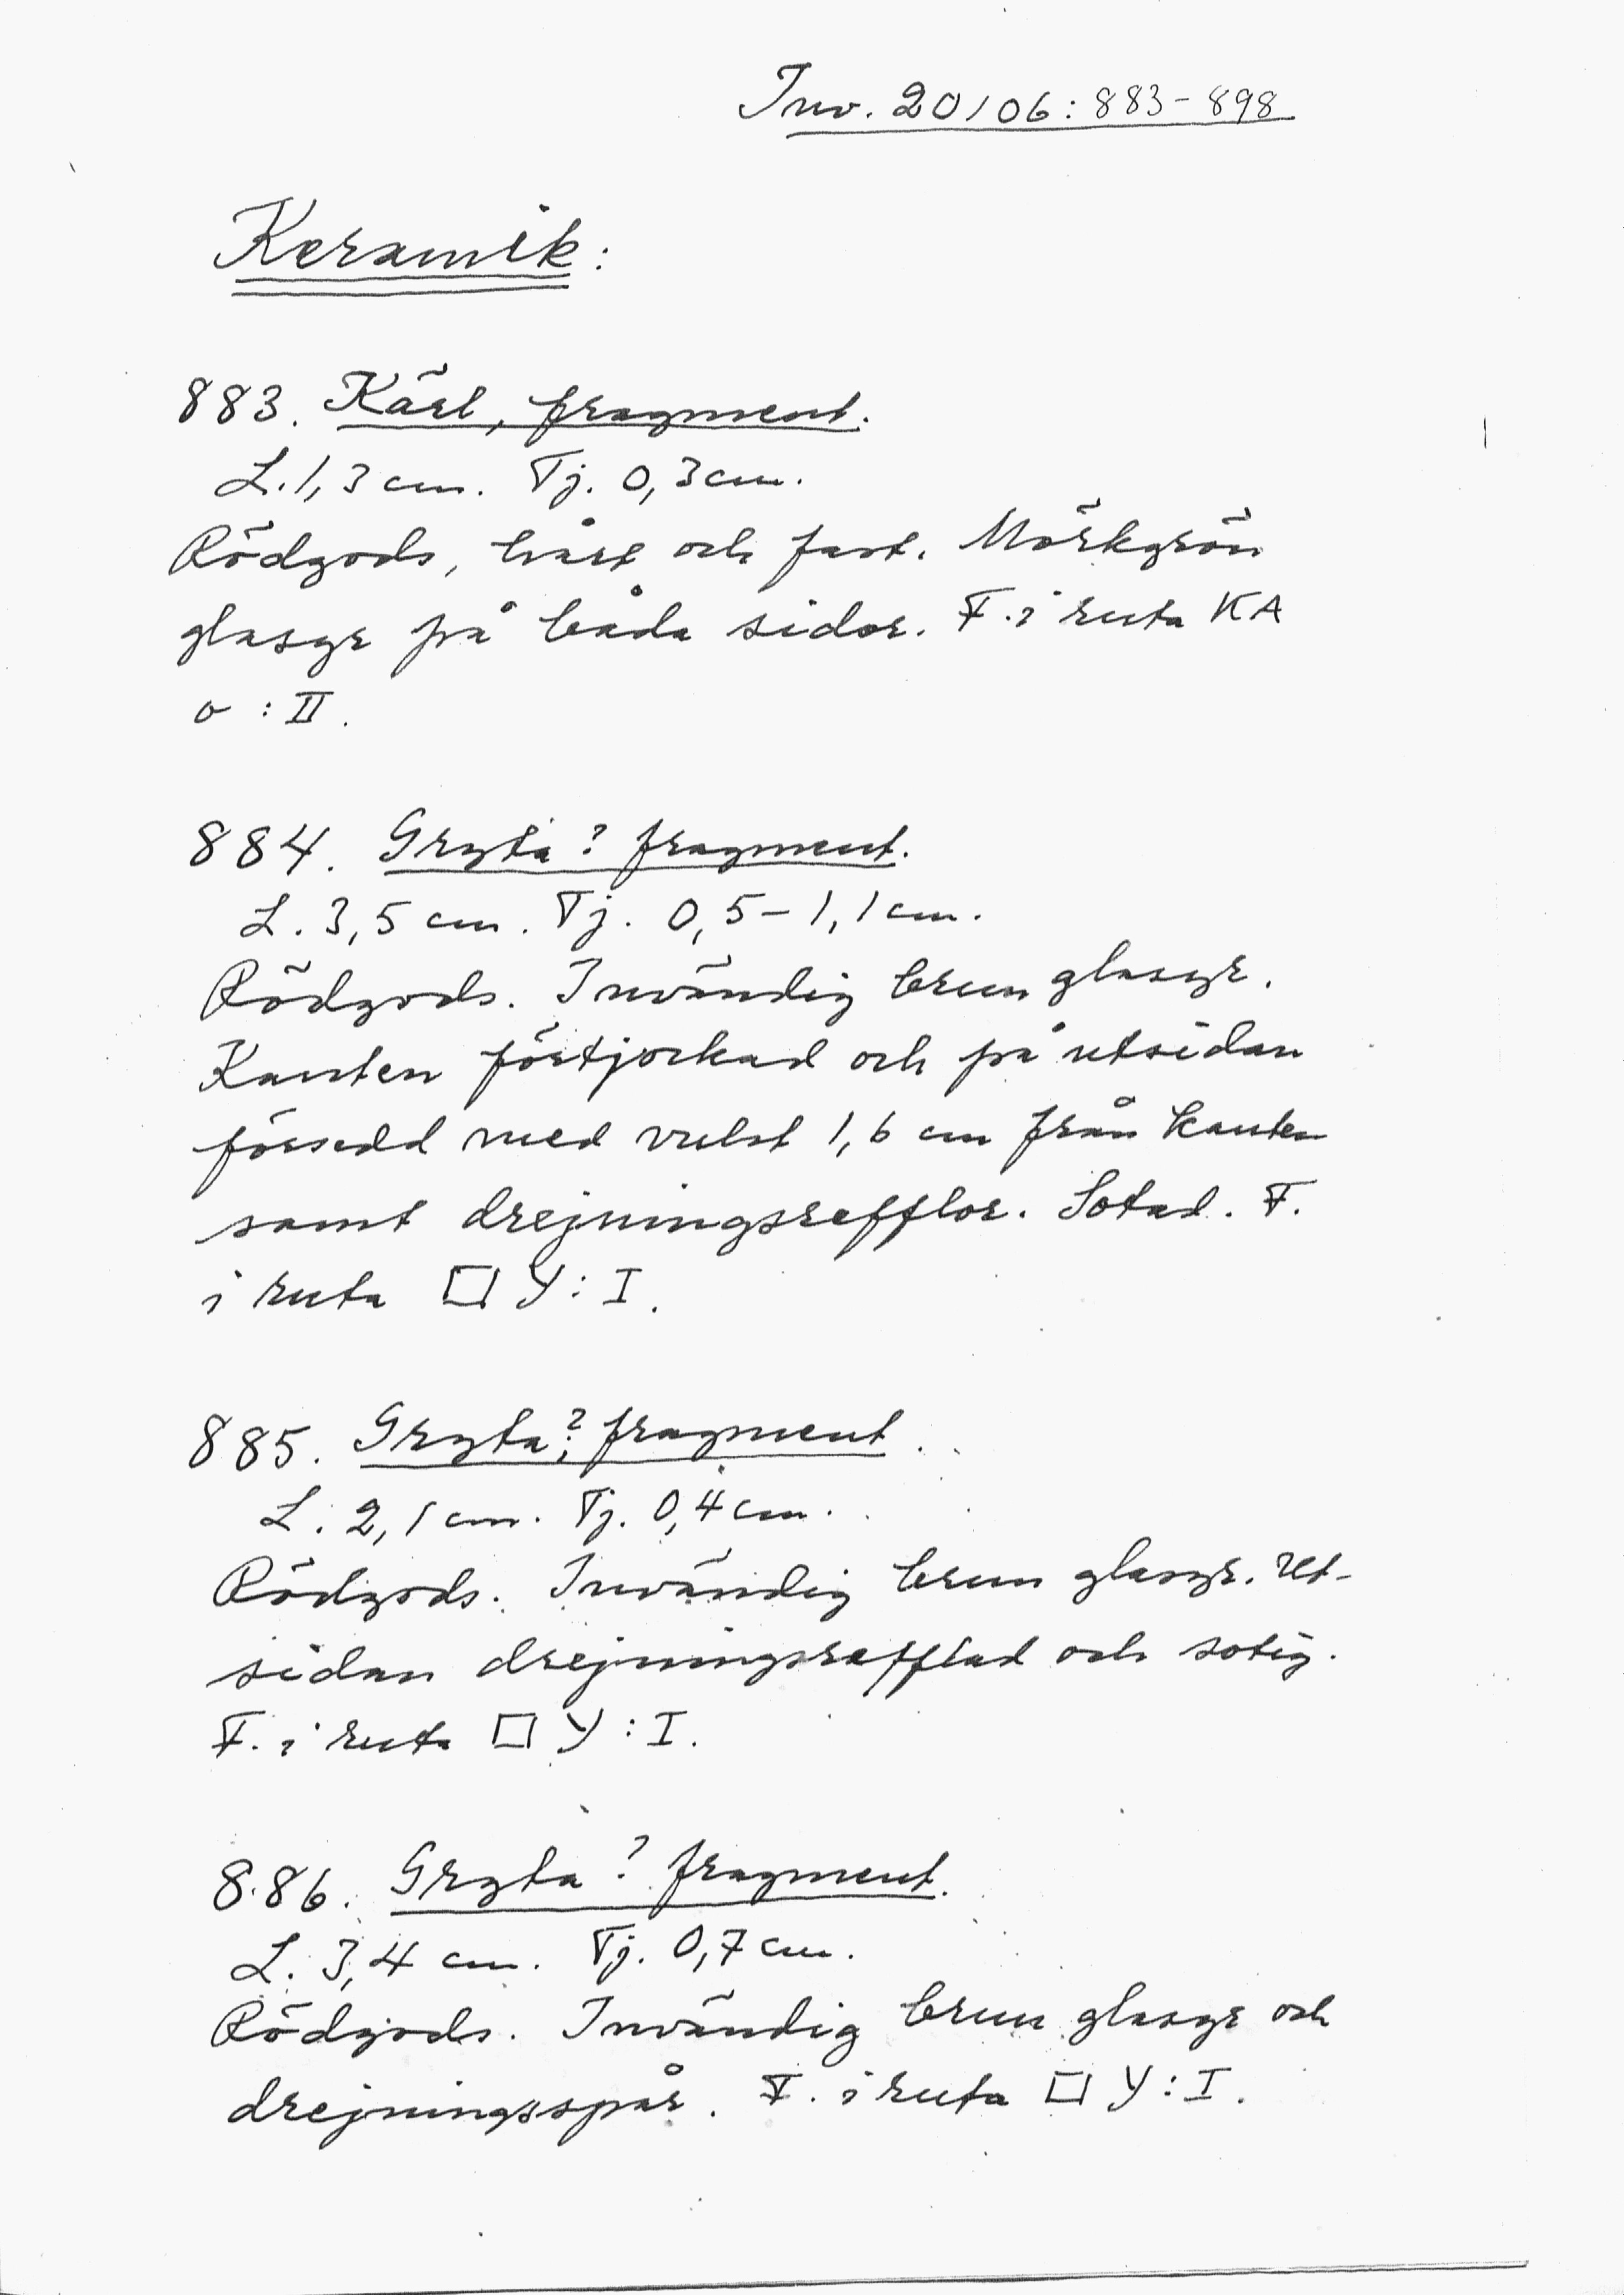 Inv. 20106:883-898
Keramik:
883. Kärl, fragment.
L. 1,3 cm. Tj. 0,3 cm.
Rödgods, hårt och fast. Mörkgrön
glasyr på båda sidor. F. i ruta KA
o : II.
884. Gryta? fragment.
L. 3,5 cm. Tj. 0,5-1,1 cm.
Rödgods. Invändig brun glasyr.
Kanten förtjockad och på utsidan
försedd med vulst 1,6 cm från kanten
samt drejningsrefflor. Sotad. F.
i ruta □ Y : I.
885. Gryta? fragment.
L. 2,1 cm. Tj. 0,4 cm.
Rödgods. Invändig brun glasyr. Ut-
sidan drejningsrefflad och sotig.
F. i ruta □ Y : I.
886. Gryta? fragment.
L. 3,4 cm. Tj. 0,7 cm.
Rödgods. Invändig brun glasyr och
drejningsspår. F. i ruta □ Y : I.